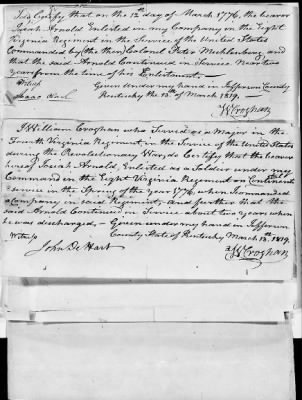 I do Certify that on the 12th day of March 1776, the bearer
Josiah Arnold Enlisted in my Company in the Eight
Virginia Regiment in the Service of the United States
Commanded by (the then) Colonel Peter Muhlenburg, and
that the said Arnold Continued in Service near two
years from the time of his Enlistment.
Witness Given under my hand in Jefferson County
Isaac Kentucky the 13th of March 1819.
W Croghan
I William Croghan who served as a Major in the
Fourth Virginia Regiment, in the Service of the United States
during the Revolutionary War, do Certify that the bearer
hereof Arnold, Enlisted as a Soldier under my
Command in the Eight Virginia Regiment on Continental
Service in the Spring of the year 1776, when I commanded
a Company in said Regiment, and further that the
said Arnold Continued in Service about two years when
discharged, Given under my hand in Jefferson
County State of Kentucky March 13th 1819.
Witness
John De Hart W Croghan